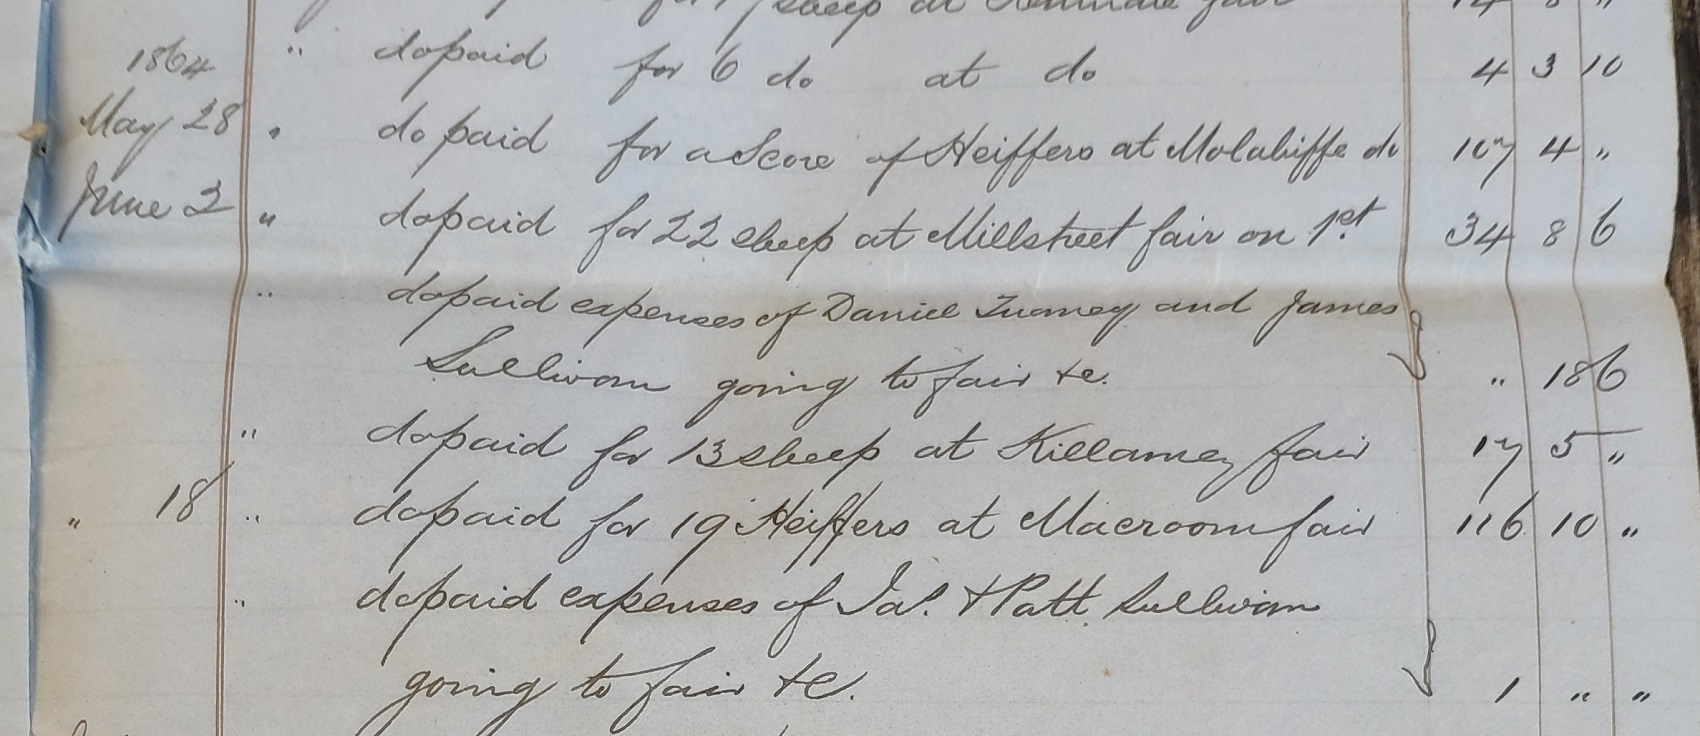 sheep at Kenmare fair 14 8 "
1864 " do paid for 6 do at do 4 3 10
May 28 " do paid for a Score of Heiffers at Molahiffe do 107 4 "
June 2 " do paid for 22 sheep at Millstreet fair on 1st 34 8 6
" do paid expenses of Daniel Tuomey and James
Sullivan going to fair &c. " 18 6
" do paid for 13 sheep at Killarney fair 17 5 "
" 18 " do paid for 19 Heiffers at Macroom fair 116 10 "
" do paid expenses of Jas. & Patt Sullivan
going to fair &c. 1 " "